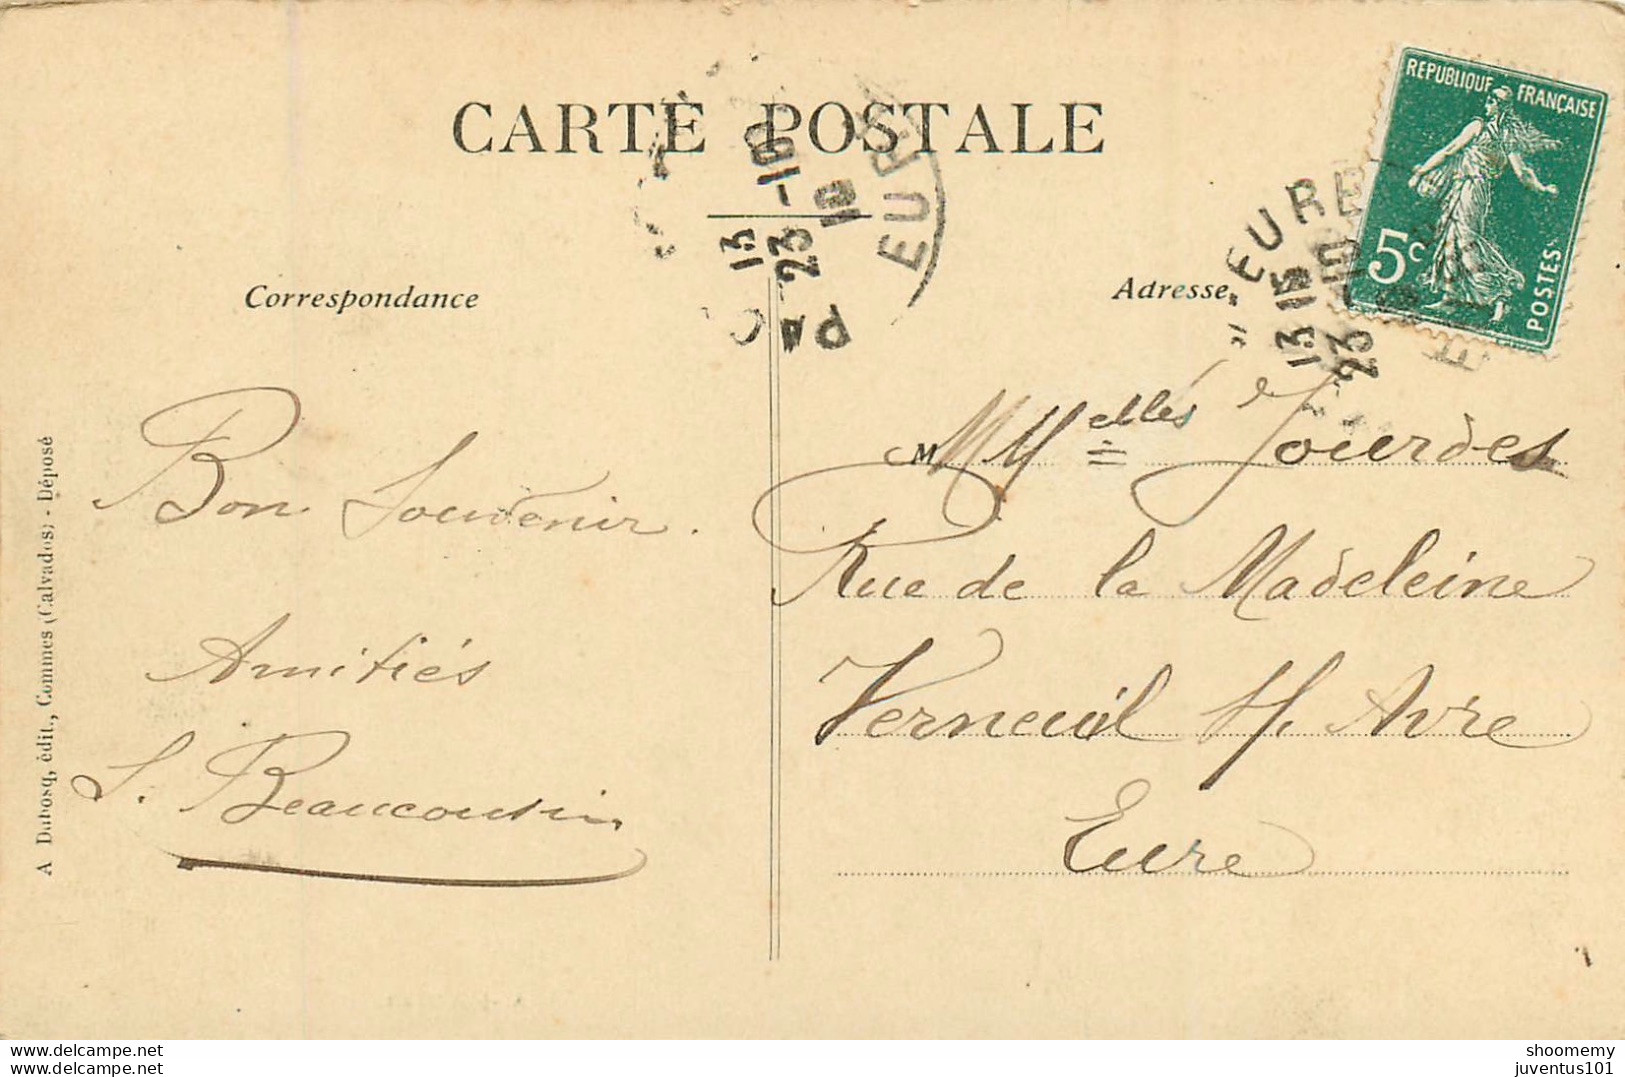 CARTE POSTALE
REPUBLIQUE FRANÇAISE
5c
POSTES
EURE
13
23-10
10
PAC
EURE
13 15
23-10
Correspondance
Adresse
Bon Souvenir.
Amitiés
M Melles Jourdes
Rue de la Madeleine
Verneuil s/. Avre
Eure
A Dubosq, édit., Commes (Calvados) - Déposé
www.delcampe.net
shoomemy
juventus101